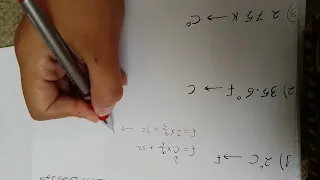 1) 2°C → F
F = C × 9/5 + 32
F = 2 × 9/5 + 32 →
2) 35.6°F → C
3) 275 K → C°